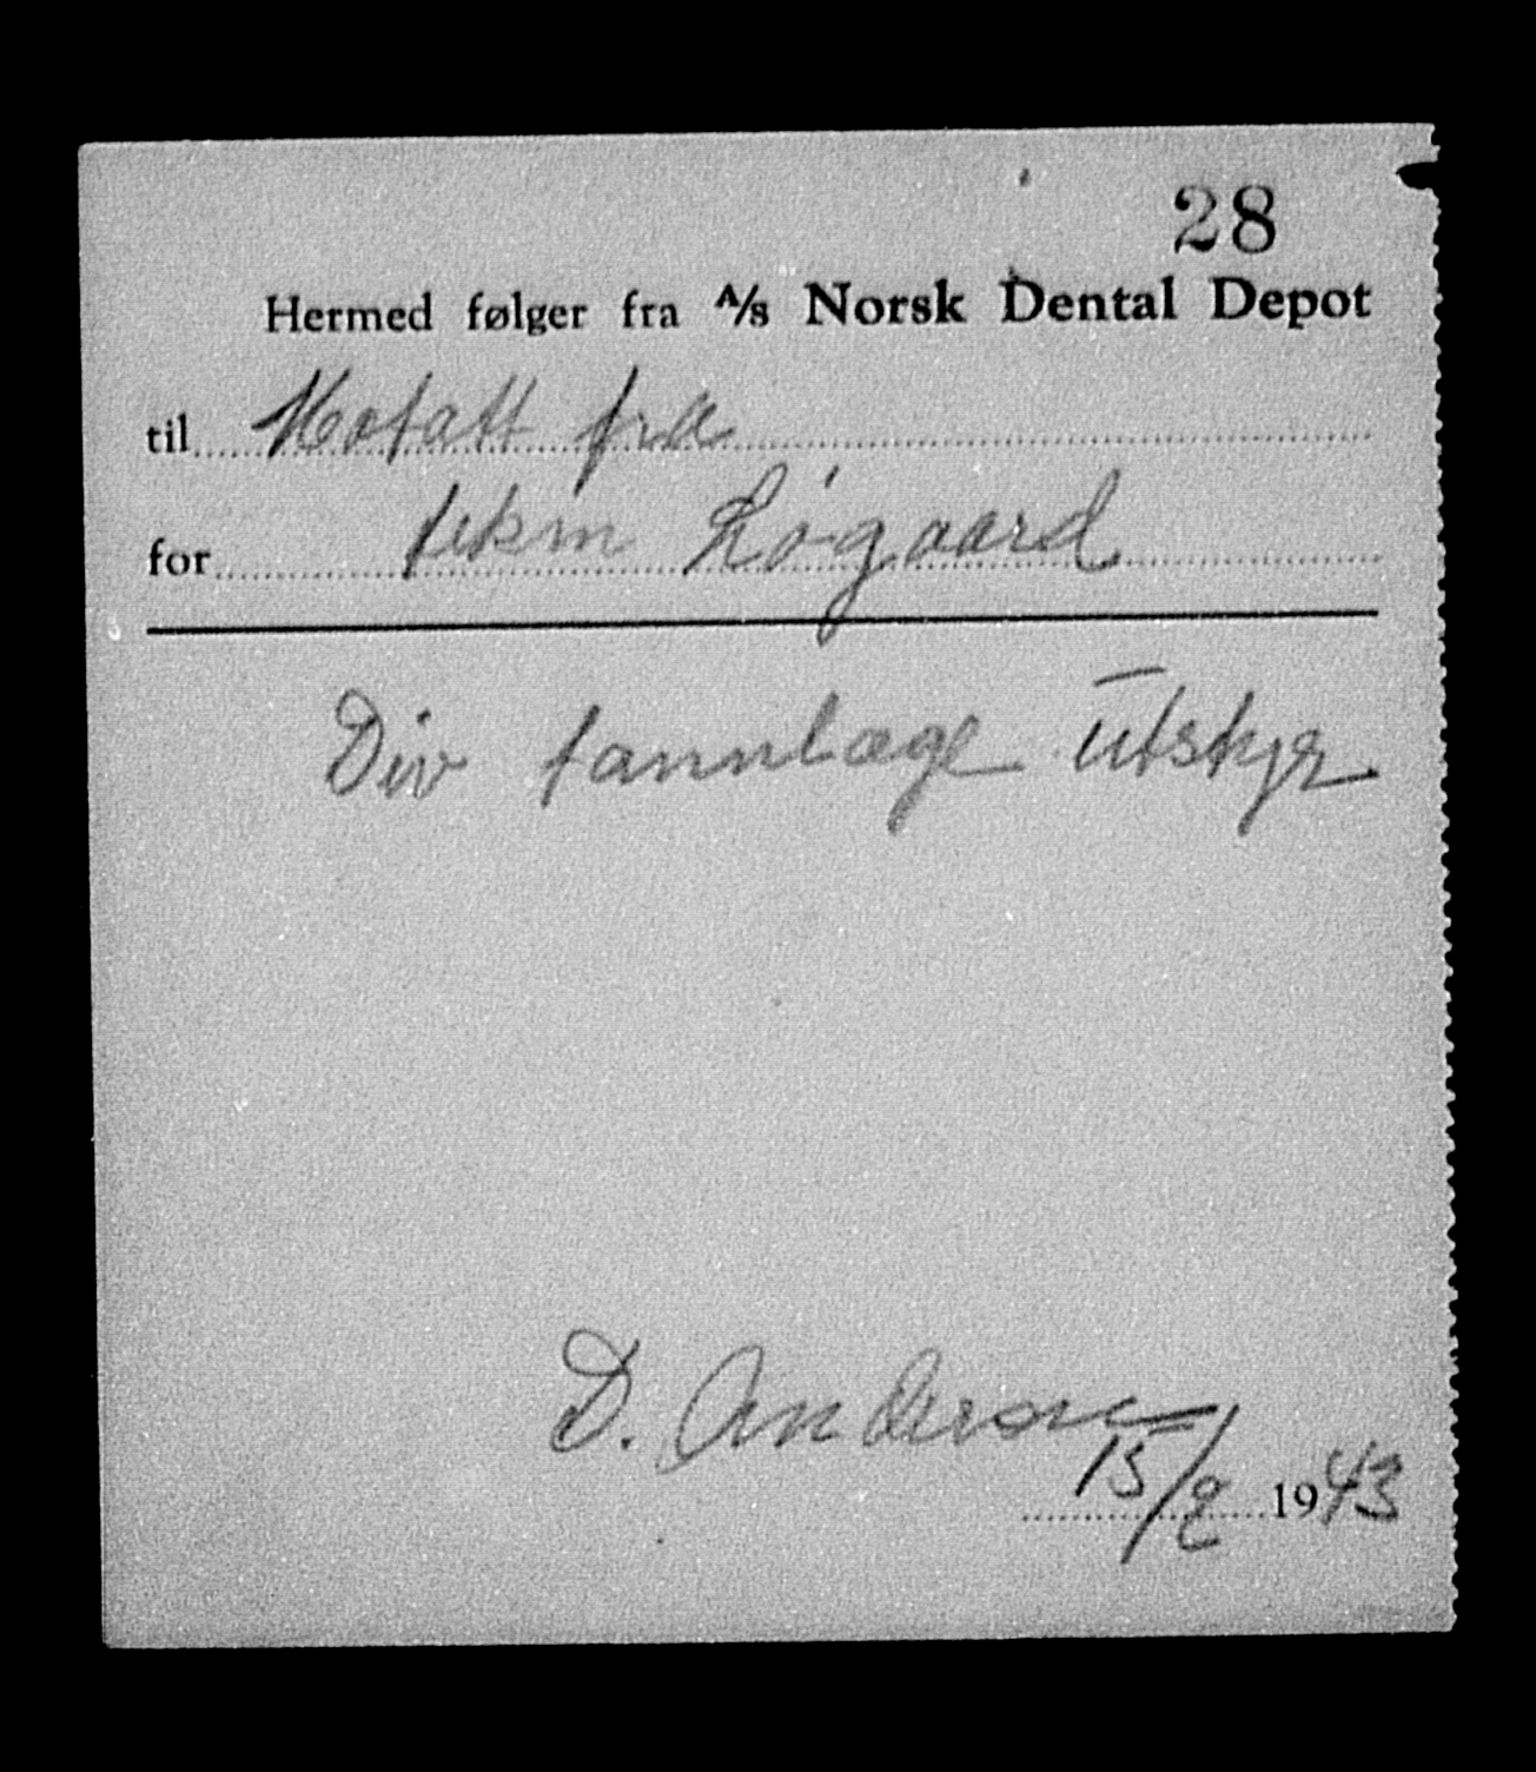 28
Hermed følger fra A/S Norsk Dental Depot
til Motatt fra
for tekn Løgaard
Div tannlæge utstyr
D. Andersen
15/2 1943